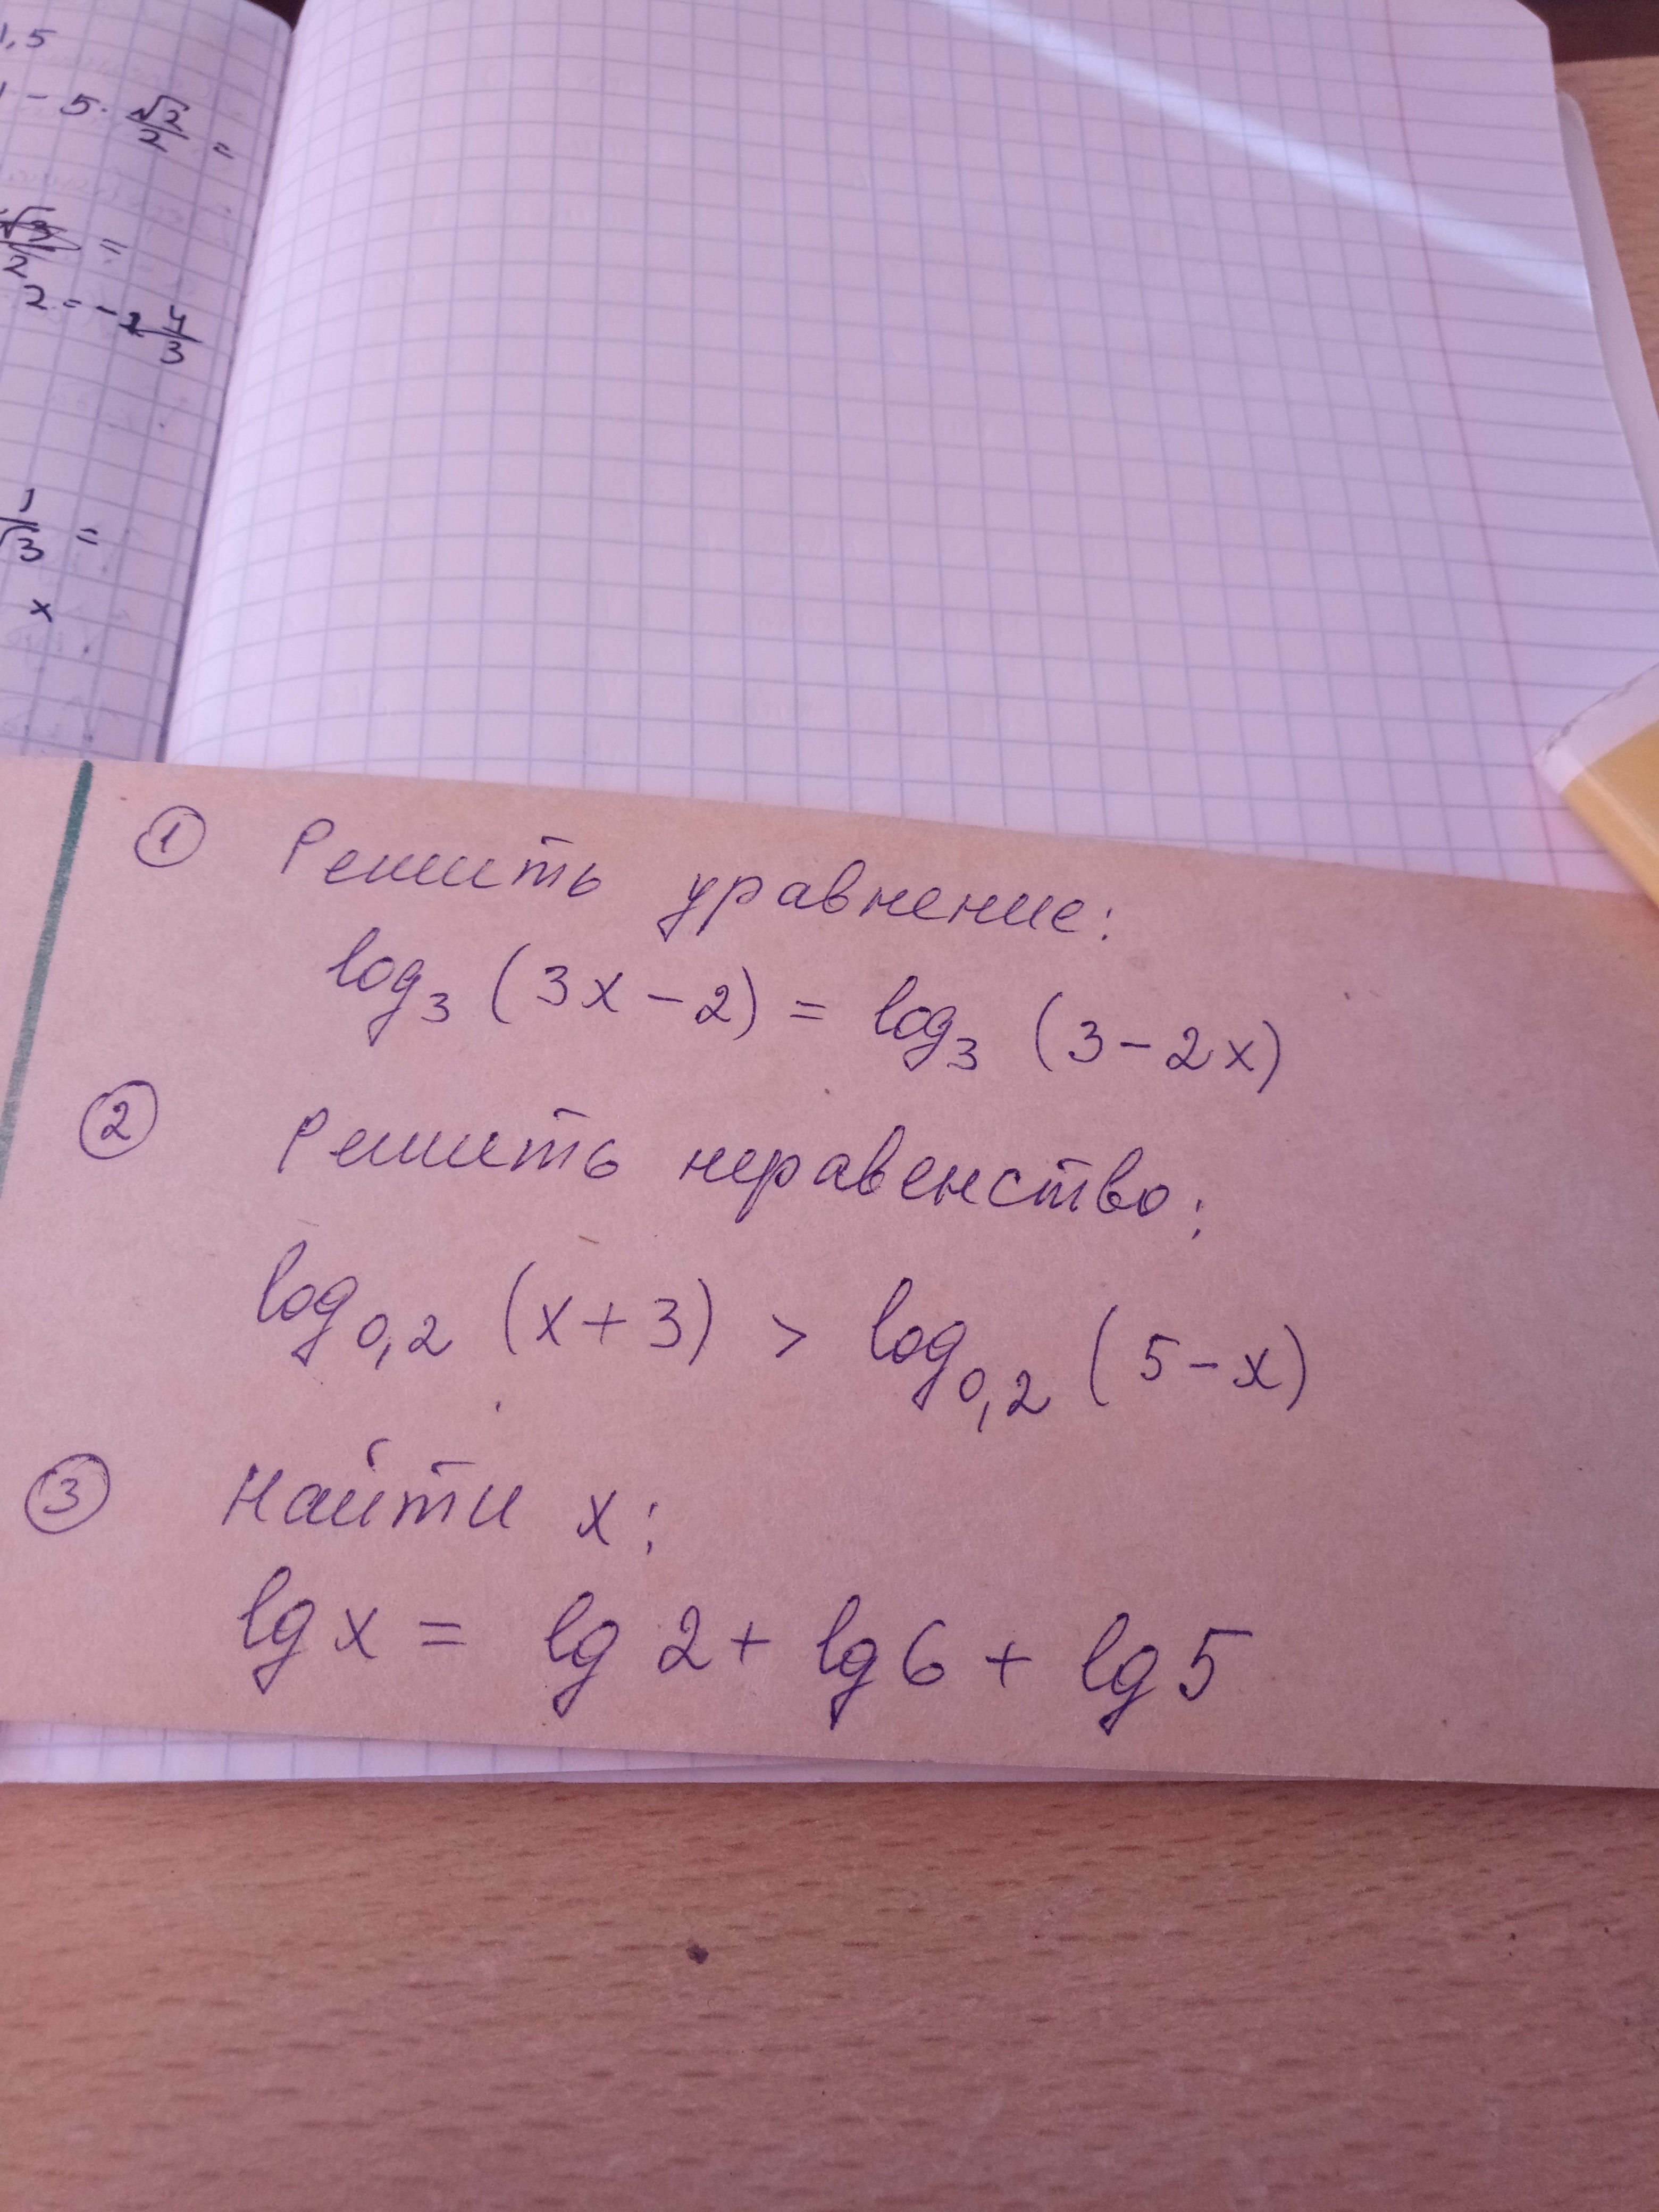 1,5
- 5 · √2/2 =
√3/2 =
2 = - 2 4/3
1/√3 =
x
① Решить уравнение:
log₃ (3x - 2) = log₃ (3 - 2x)
② Решить неравенство:
log₀,₂ (x + 3) > log₀,₂ (5 - x)
③ Найти x:
lg x = lg 2 + lg 6 + lg 5